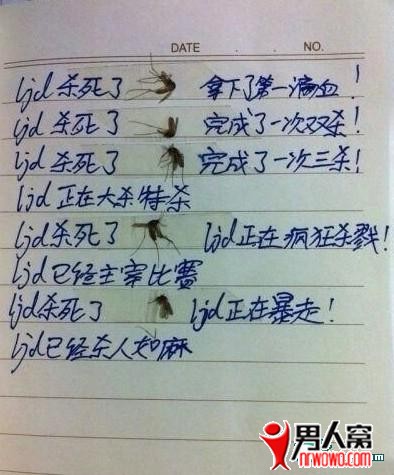 DATE . . NO.
ljd 杀死了 拿下了第一滴血!
ljd 杀死了 完成了一次双杀!
ljd 杀死了 完成了一次三杀!
ljd 正在大杀特杀
ljd杀死了 ljd正在疯狂杀戮!
ljd已经主宰比赛
ljd杀死了 ljd正在暴走!
ljd已经杀人如麻
男人窝
nrwowo.com